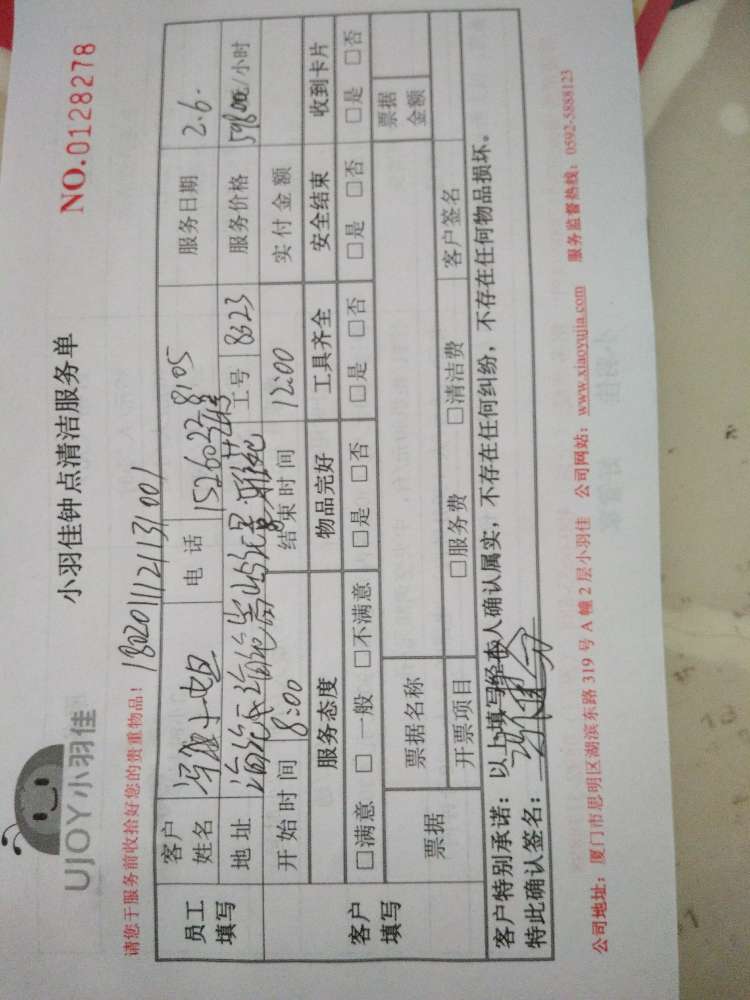 UJOY小羽佳
小羽佳钟点清洁服务单
NO.0128278
请您于服务前收拾好您的贵重物品！
员工填写
客户姓名
小姐
电话
服务日期
2.6.
地址
工号
8323
服务价格
元/小时
开始时间
8:00
结束时间
12:00
实付金额
客户填写
服务态度
物品完好
工具齐全
安全结束
收到卡片
□满意 □一般 □不满意
□是 □否
□是 □否
□是 □否
□是 □否
票据
票据名称
票据金额
开票项目
□服务费 □清洁费
客户签名
客户特别承诺：以上填写经本人确认属实，不存在任何纠纷，不存在任何物品损坏。
特此确认签名：
公司地址：厦门市思明区湖滨东路 319 号 A 幢 2 层小羽佳 公司网站：www.xiaoyujia.com 服务监督热线：0592-5888123